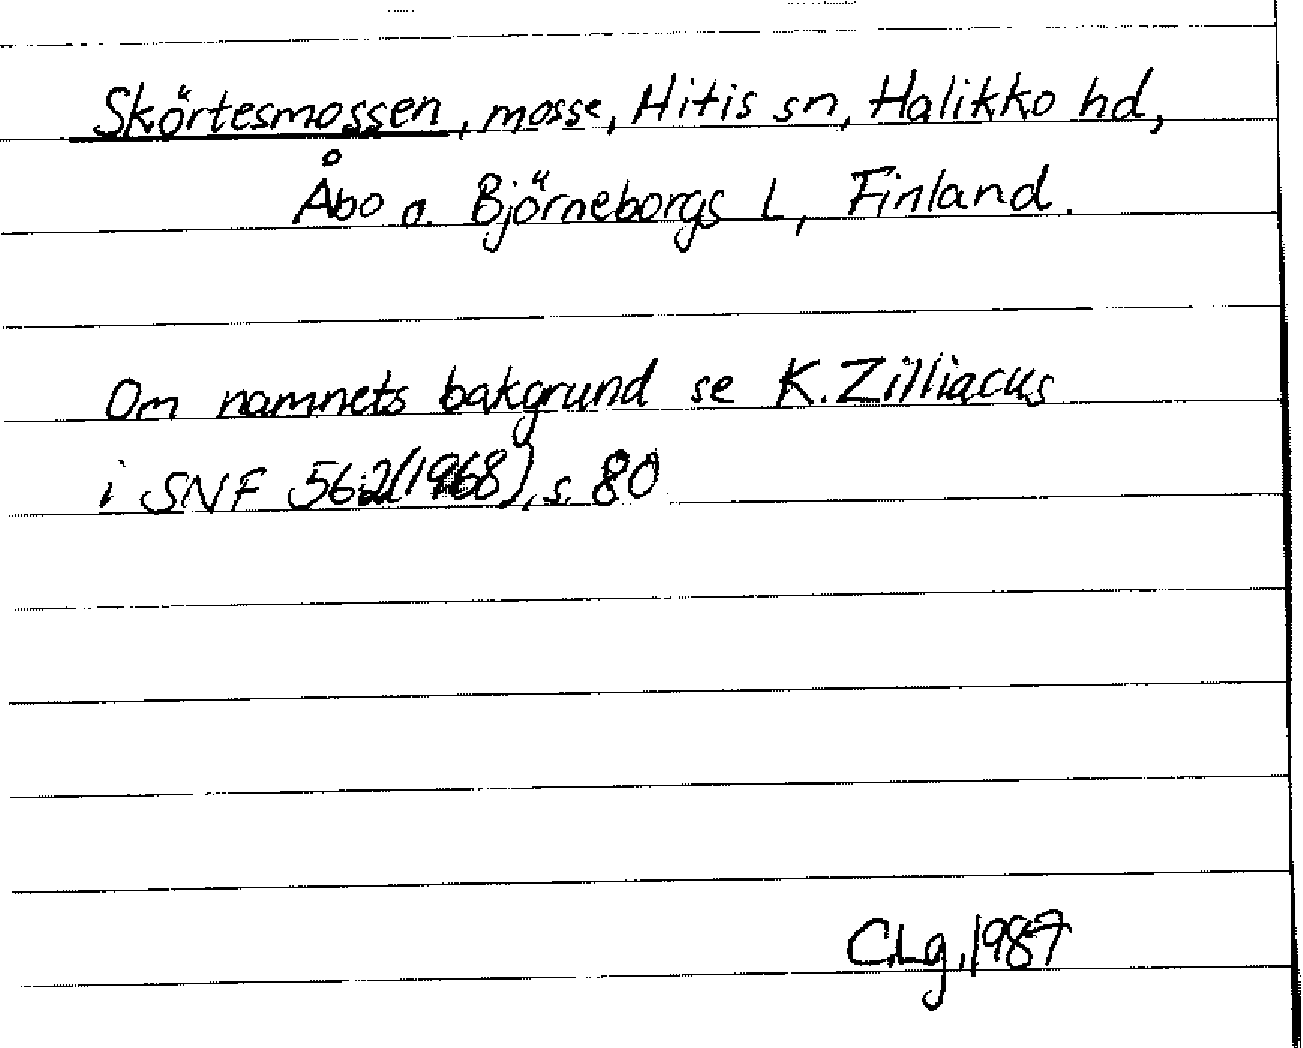 Skörtesmossen, mosse, Hitis sn, Halikko hd,
Åbo o. Björneborgs L, Finland.
Om namnets bakgrund se K. Zilliacus
i SNF 56:2(1968), s. 80
C.Lg, 1987